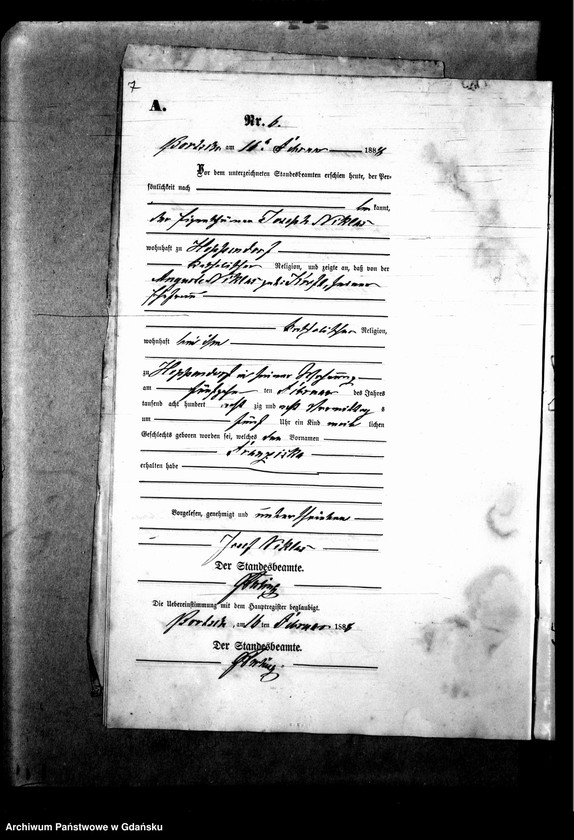 7
A.
Nr. 6.
am 16ten Februar 1888
Vor dem unterzeichneten Standesbeamten erschien heute, der Per-
sönlichkeit nach
be kannt,
der Eigenthümer Joseph Niklas
wohnhaft zu Hoppendorf
katholischer Religion, und zeigte an, daß von der
Auguste Niklas geb. seiner
Ehefrau
katholischer Religion,
wohnhaft bei ihm
zu Hoppendorf in seiner Wohnung
am fünfzehn ten Februar des Jahres
tausend acht hundert acht zig und acht Vormittag s
um fünf Uhr ein Kind weib lichen
Geschlechts geboren worden sei, welches den Vornamen
Franziska
erhalten habe
Vorgelesen, genehmigt und unterschrieben
Josef Niklas
Der Standesbeamte.
Die Uebereinstimmung mit dem Hauptregister beglaubigt.
am 16 ten Februar 1888
Der Standesbeamte.
Archiwum Państwowe w Gdańsku